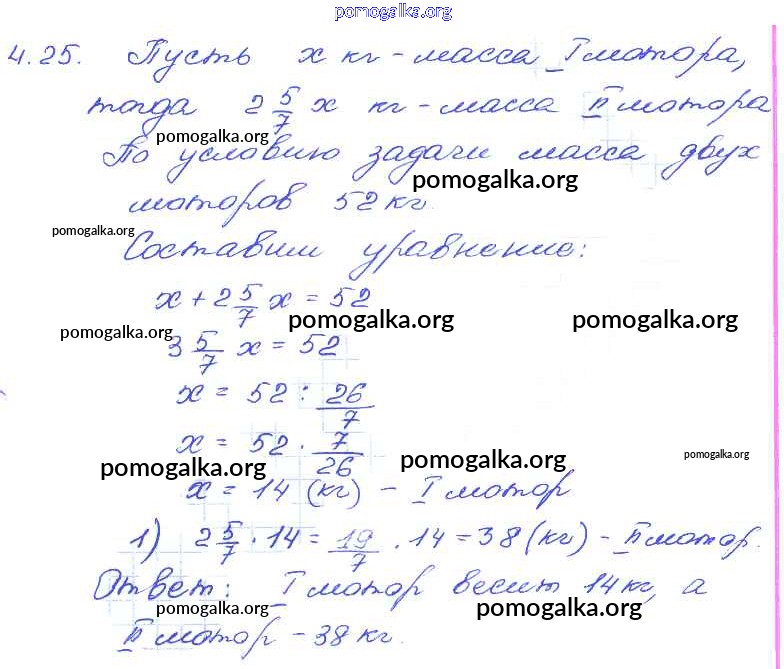 pomogalka.org
4.25. Пусть x кг - масса I мотора,
тогда 2 5/7 x кг - масса II мотора
pomogalka.org
По условию задачи масса двух
pomogalka.org
моторов 52 кг.
pomogalka.org
Составим уравнение:
x + 2 5/7 x = 52
pomogalka.org pomogalka.org
pomogalka.org
3 5/7 x = 52
x = 52 : 26/7
x = 52 · 7/26
pomogalka.org pomogalka.org pomogalka.org
x = 14 (кг) - I мотор
1) 2 5/7 · 14 = 19/7 · 14 = 38 (кг) - II мотор.
Ответ: I мотор весит 14 кг, а
pomogalka.org pomogalka.org
II мотор - 38 кг.